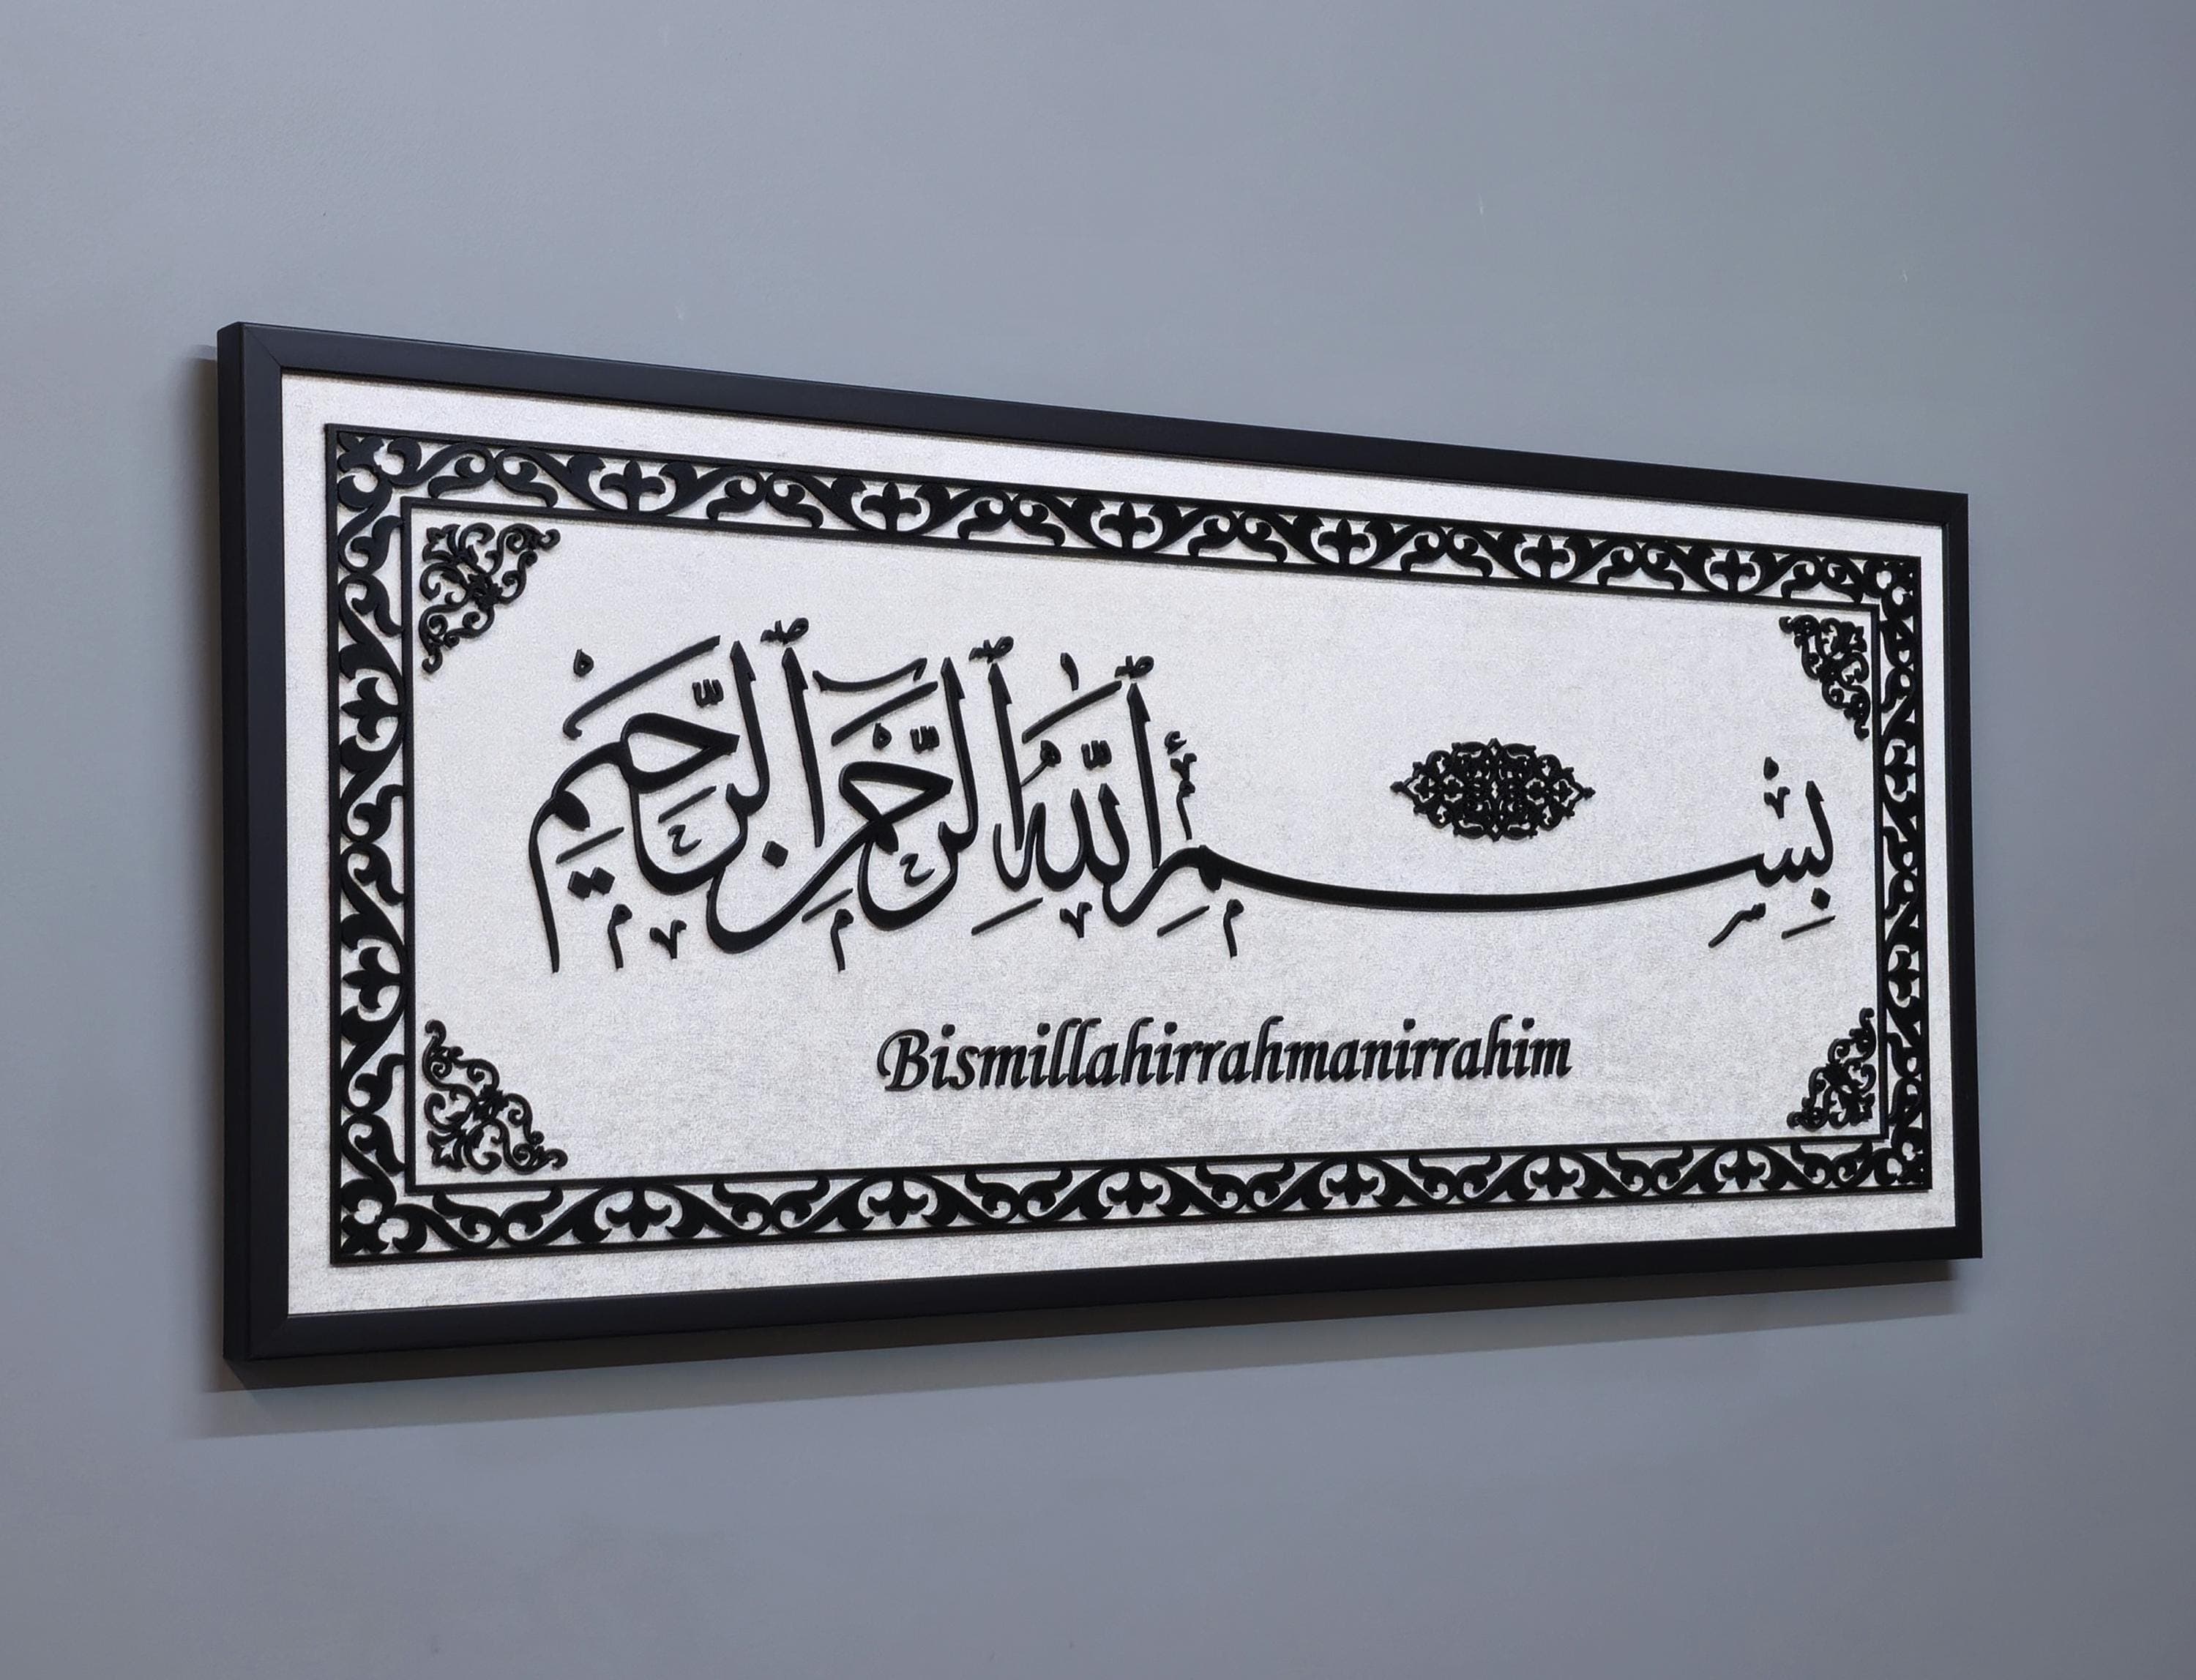 بِسْمِ اللَّهِ الرَّحْمٰنِ الرَّحِيمِ
Bismillahirrahmanirrahim